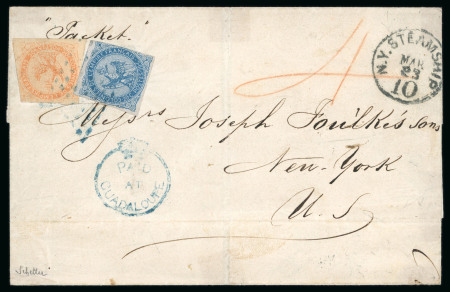 "Packet."
N.Y. STEAMSHIP
MAR
23
10
4
Messrs Joseph Foulke's Sons
PAID
AT
GUADALOUPE
New-York
U. S